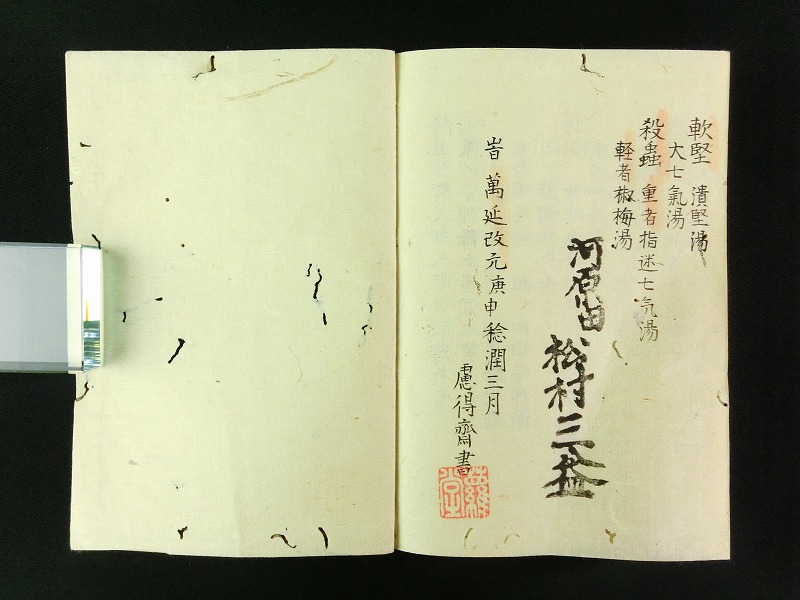 軟堅　潰堅湯
大七氣湯
殺蟲　重者指迷七気湯
軽者椒梅湯
河原田
松村三益
旹萬延改元庚申稔潤三月
慮得齋書